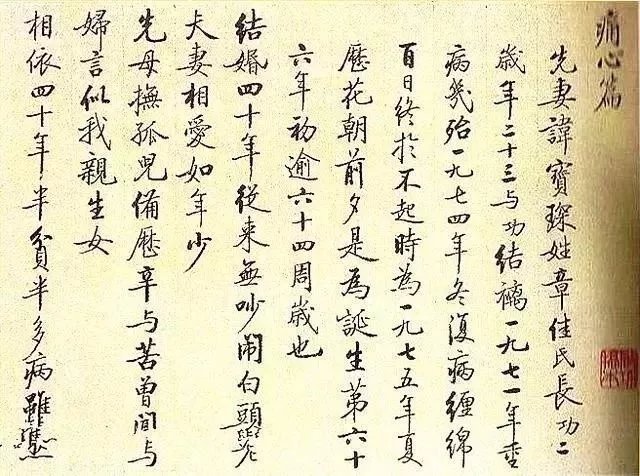 痛心篇
先妻諱寶琛姓章佳氏長功二
歲年二十三与功结褵一九七一年重
病幾殆一九七四年冬復病纏綿
百日終於不起時為一九七五年夏
歷花朝前夕是為誕生第六十
六年初逾六十四周歲也
結婚四十年從来無吵鬧白頭老
夫妻相愛如年少
先母撫孤兒備歷辛与苦曾聞与
婦言似我親生女
相依四十年半貧半多病雖然